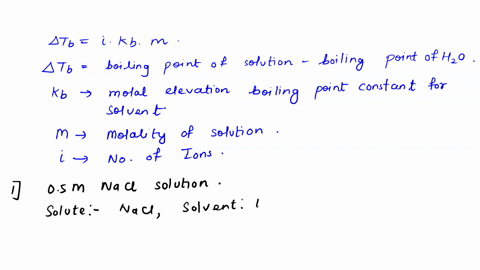 ΔTb = i. kb. m.
ΔTb = boiling point of solution - boiling point of H2O.
kb → molal elevation boiling point constant for
solvent
m → Molality of solution.
i → No. of Ions.
1] 0.5 m NaCl solution.
Solute:- NaCl, Solvent: